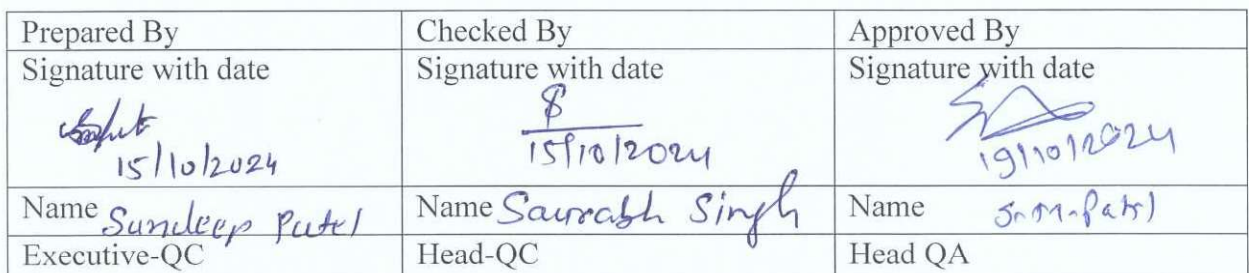 Prepared By
Checked By
Approved By
Signature with date
Signature with date
Signature with date
15/10/2024
15/10/2024
19/10/2024
Name Sundeep Patel
Name Saurabh Singh
Name S.M.Patel
Executive-QC
Head-QC
Head QA